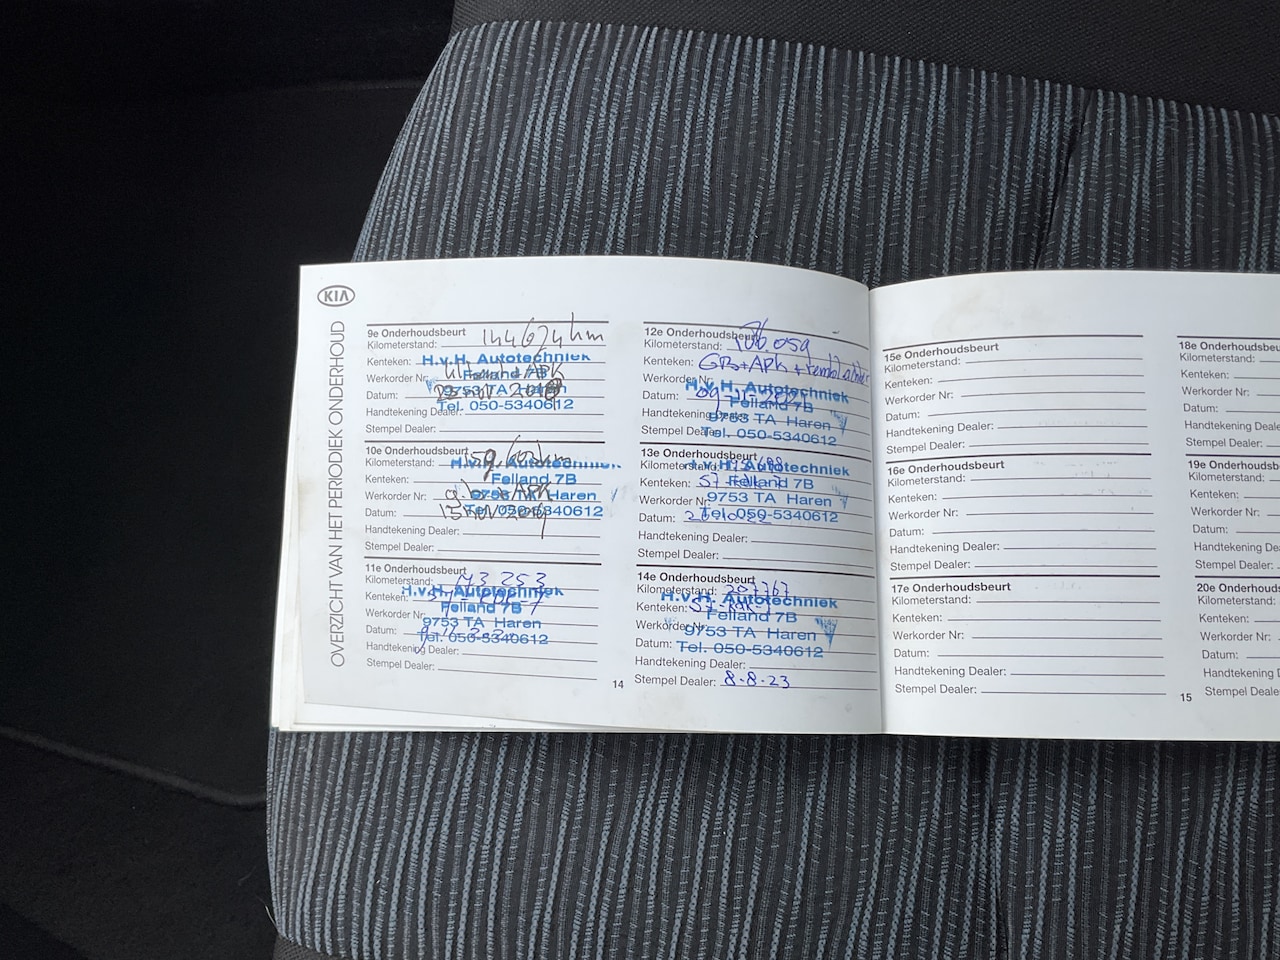 KIA
OVERZICHT VAN HET PERIODIEK ONDERHOUD
9e Onderhoudsbeurt
Kilometerstand: 144674 km
Kenteken:
Werkorder Nr:
Datum:
Handtekening Dealer:
Stempel Dealer:
H.v.H. Autotechniek
Felland 7B
9753 TA Haren
Tel. 050-5340612
10e Onderhoudsbeurt
Kilometerstand:
Kenteken:
Werkorder Nr:
Datum: 15 nov 2019
Handtekening Dealer:
Stempel Dealer:
H.v.H. Autotechniek
Felland 7B
9753 TA Haren
Tel. 050-5340612
11e Onderhoudsbeurt
Kilometerstand: 173 253
Kenteken:
Werkorder Nr:
Datum:
Handtekening Dealer:
Stempel Dealer:
H.v.H. Autotechniek
Felland 7B
9753 TA Haren
Tel. 050-5340612
14
12e Onderhoudsbeurt
Kilometerstand: 186.059
Kenteken: GB+APK+
Werkorder Nr:
Datum:
Handtekening Dealer:
Stempel Dealer:
H.v.H. Autotechniek
Felland 7B
9753 TA Haren
Tel. 050-5340612
13e Onderhoudsbeurt
Kilometerstand:
Kenteken:
Werkorder Nr:
Datum:
Handtekening Dealer:
Stempel Dealer:
H.v.H. Autotechniek
Felland 7B
9753 TA Haren
Tel. 050-5340612
14e Onderhoudsbeurt
Kilometerstand: 207767
Kenteken:
Werkorder Nr:
Datum:
Handtekening Dealer:
Stempel Dealer: 8-8-23
H.v.H. Autotechniek
Felland 7B
9753 TA Haren
Tel. 050-5340612
15e Onderhoudsbeurt
Kilometerstand:
Kenteken:
Werkorder Nr:
Datum:
Handtekening Dealer:
Stempel Dealer:
16e Onderhoudsbeurt
Kilometerstand:
Kenteken:
Werkorder Nr:
Datum:
Handtekening Dealer:
Stempel Dealer:
17e Onderhoudsbeurt
Kilometerstand:
Kenteken:
Werkorder Nr:
Datum:
Handtekening Dealer:
Stempel Dealer:
15
18e Onderhouds
Kilometerstand:
Kenteken:
Werkorder Nr:
Datum:
Handtekening
Stempel Dealer
19e Onderhouds
Kilometerstand:
Kenteken:
Werkorder Nr:
Datum:
Handtekening
Stempel Dealer
20e Onderhouds
Kilometerstand:
Kenteken:
Werkorder Nr:
Datum:
Handtekening
Stempel Dealer